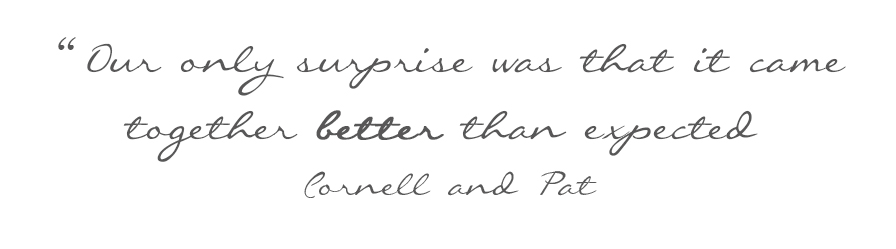 “ Our only surprise was that it came
together better than expected
Cornell and Pat